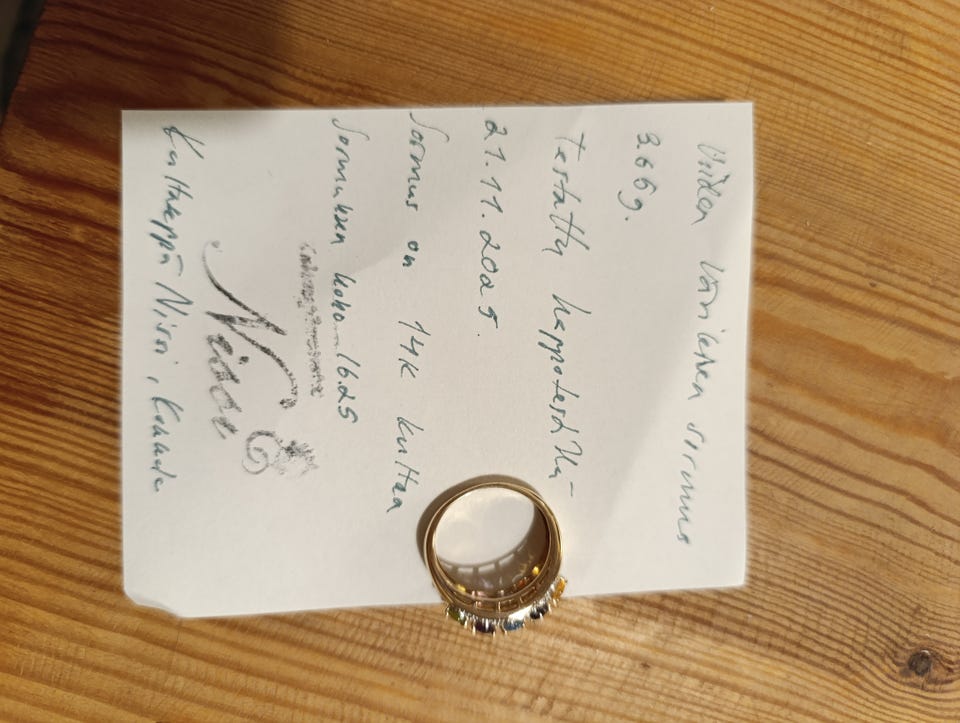 Viiden värikkään sormus
3.66g.
Testattu happotestillä
21.11.2025.
Sormus on 14K kultaa
Sormuksen koko 16.25
Neison
Kultaseppä Nissi, Kouvola